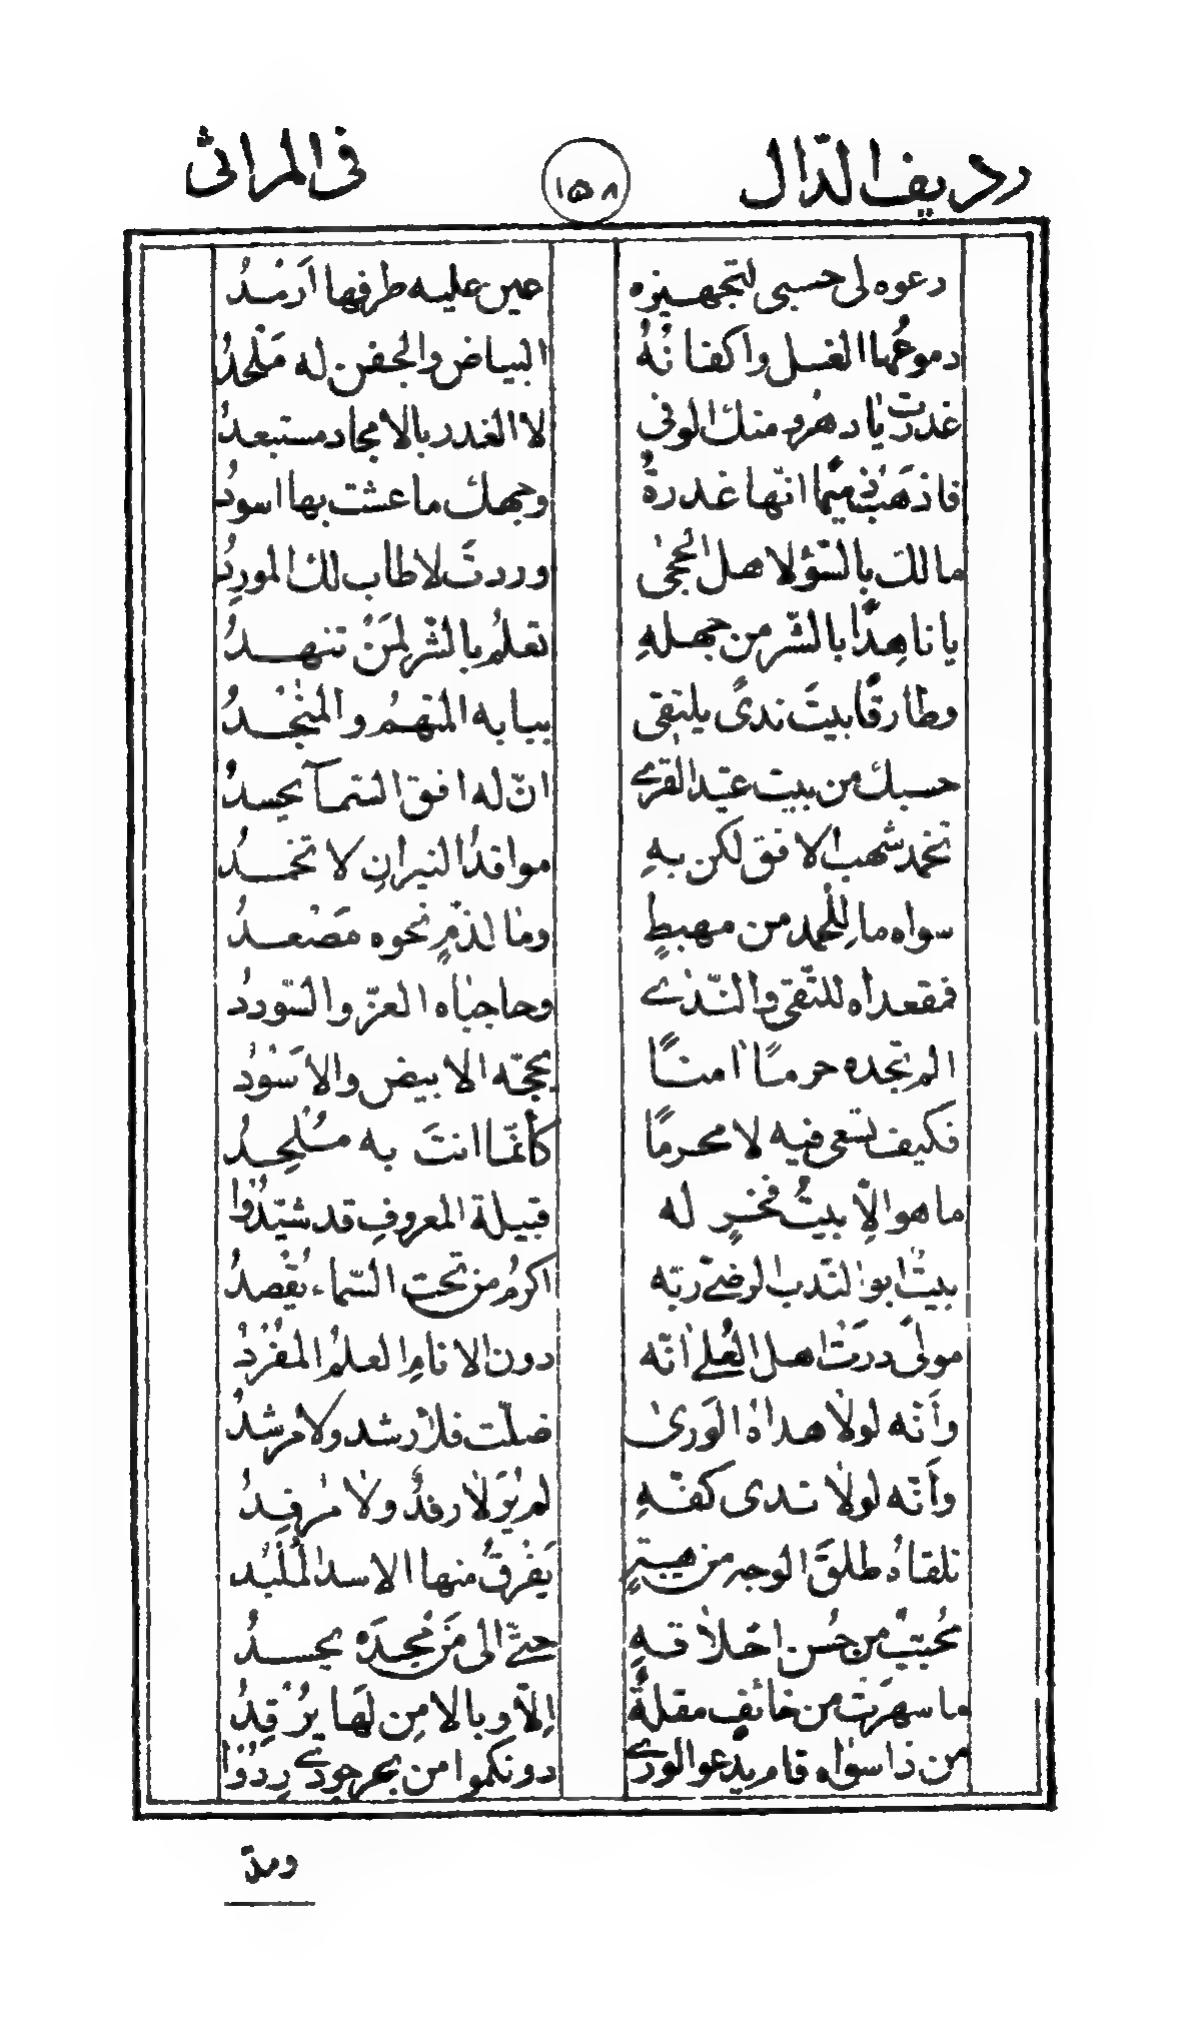 ردیف الدّال ١٥٨ فی المراثی
دعوه لی حسبی لتجهیزه عین علیه طرفها ارمدُ
دموعُها الغسل واکفانُهُ البیاض والجفن له مَلْحدُ
غدرت یٰا دهرُ و منك الوفی لا الغدر بالامجاد مستبعدُ
فاذهَبْ ذمیمًا انّها غدرةٌ وجهك ما عشت بها اسودُ
مالك بالسّؤ لاهل الحجیٰ وردتَ لاطاب لك الموردُ
یا ناهدًا بالشّر من جهلهِ تعلمُ بالشّر لمَنْ تنهدُ
وطارقًا بیتَ ندیً یلتقی ببابه المتهمُ والمنْجدُ
حسبك من بیت عقید القرے انّ له افق السّمآ یحسدُ
تخمد شهب الافق لکن بهِ مواقدُ النیرانِ لا تخمدُ
سواه ما للْحمد من مهبطٍ ومٰا لذمٍّ نحوه مَصْعدُ
فمقعداه للتّقی والنّدے وحاجبٰاه العزّ والسّوددُ
الم تجده حرمًا اٰمنًا یحجّه الابیض والاَسْودُ
فکیف تسعی فیه لا محرمًا کأنمّا انتَ به مُلْحِدُ
ما هو الاّ بیتُ فخرٍ له قبیلة المعروفِ قد شیّدُوٰا
بیتُ ابو النّدب الرضے ربّه اکرمُ من تحت السّماء یُقْصدُ
مولیً درَتْ اهل العُلےٰ انّه دون الانامِ العلمُ المُفْردُ
وأنّه لولا هداهُ الوَریٰ ضلّت فلا رشد ولا مرشدُ
وأنّه لولا ندی کفّهِ لم یُرَ لا رفدٌ ولا مرفِدُ
تلقاهُ طلقَ الوجه من هیبةٍ یَفْرقُ منها الاسد المُلْبد
محُبّبٌ من حُسن اخلاقهِ حتّے الی مَنْ مجدَه یحسدُ
ما سهرَت من خائفٍ مقلةٌ الاّ وبالامن لهَا یُرْقِدُ
من ذا سوٰاه قام یدعو الورےٰ دونکموا من بحر جودے رِدُوٰا
ومدّ